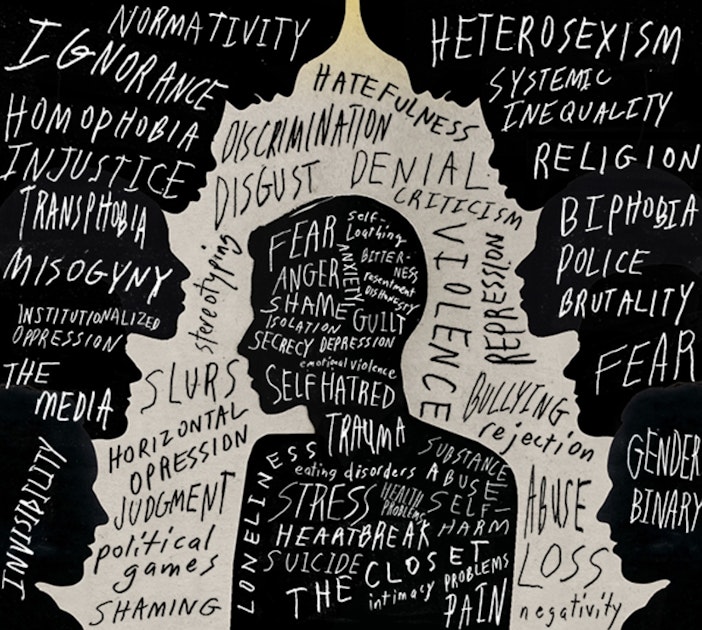 NORMATIVITY
IGNORANCE
HOMOPHOBIA
INJUSTICE
TRANSPHOBIA
MISOGYNY
INSTITUTIONALIZED
OPPRESSION
THE
MEDIA
INVISIBILITY
HATEFULNESS
DISCRIMINATION
DISGUST
DENIAL
CRITICISM
stereotyping
VIOLENCE
REPRESSION
SLURS
HORIZONTAL
OPRESSION
JUDGMENT
political
games
SHAMING
BULLYING
rejection
ABUSE
LOSS
negativity
HETEROSEXISM
SYSTEMIC
INEQUALITY
RELIGION
BIPHOBIA
POLICE
BRUTALITY
FEAR
GENDER
BINARY
FEAR
self-
Loathing
ANXIETY
BITTER-
NESS
ANGER
resentment
DISHONESTY
SHAME
GUILT
ISOLATION
SECRECY
DEPRESSION
emotional violence
SELF HATRED
TRAUMA
LONELINESS
eating disorders
SUBSTANCE
ABUSE
STRESS
HEALTH
PROBLEMS
SELF-
HARM
HEARTBREAK
SUICIDE
THE CLOSET
intimacy
PROBLEMS
PAIN